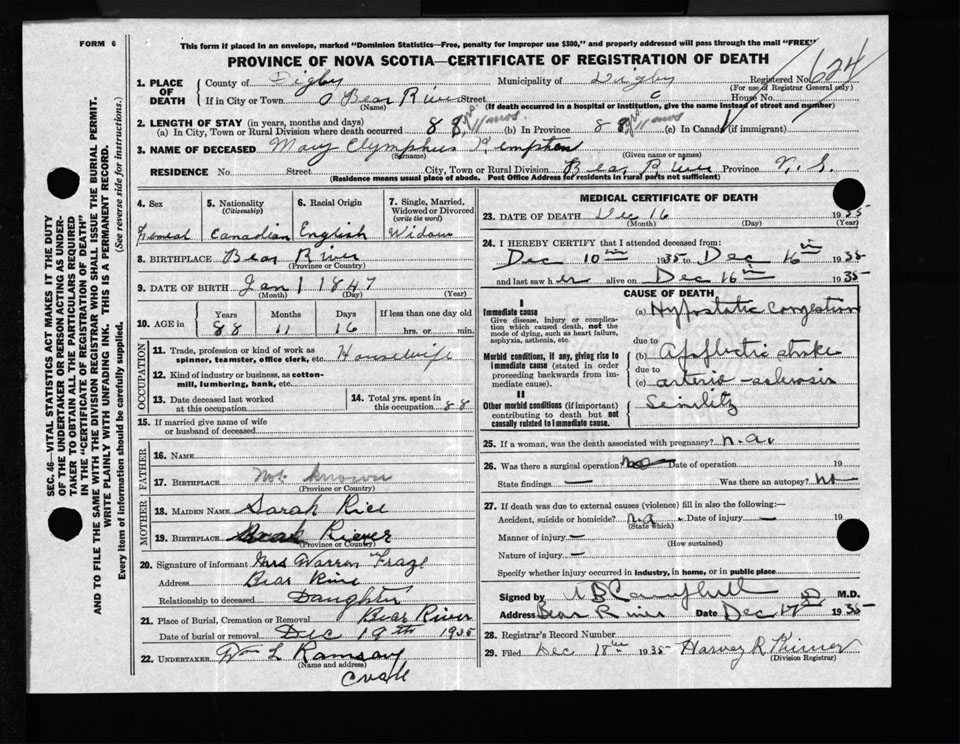 FORM 6
This form if placed in an envelope, marked "Dominion Statistics—Free, penalty for improper use $300," and properly addressed will pass through the mail "FREE"
PROVINCE OF NOVA SCOTIA—CERTIFICATE OF REGISTRATION OF DEATH
1. PLACE OF DEATH
County of Digby Municipality of Digby Registered No. 624
(For use of Registrar General only)
If in City or Town Bear River Street House No.
(Name) (If death occurred in a hospital or institution, give the name instead of street and number)
2. LENGTH OF STAY (in years, months and days)
(a) In City, Town or Rural Division where death occurred 88 yrs. 11 mos (b) In Province 88 yrs 11 mos (c) In Canada (if immigrant)
3. NAME OF DECEASED Mary Olymphus
(Surname) (Given name or names)
RESIDENCE No. Street City, Town or Rural Division Bear River Province N.S.
(Residence means usual place of abode. Post Office Address for residents in rural parts not sufficient)
4. Sex Femeal
5. Nationality (Citizenship) Canadian
6. Racial Origin English
7. Single, Married, Widowed or Divorced (write the word) Widow
8. BIRTHPLACE Bear River
(Province or Country)
9. DATE OF BIRTH Jan 1 1847
(Month) (Day) (Year)
10. AGE in Years Months Days If less than one day old
88 11 16 hrs. or min.
OCCUPATION
11. Trade, profession or kind of work as spinner, teamster, office clerk, etc. Housewife
12. Kind of industry or business, as cotton-mill, lumbering, bank, etc.
13. Date deceased last worked at this occupation
14. Total yrs. spent in this occupation 88
15. If married give name of wife or husband of deceased
FATHER
16. NAME
17. BIRTHPLACE Not known
(Province or Country)
MOTHER
18. MAIDEN NAME Sarah Rice
19. BIRTHPLACE Riever
(Province or Country)
20. Signature of informant Mrs Warren
Address Bear River
Relationship to deceased Daughter
21. Place of Burial, Cremation or Removal Bear River
Date of burial or removal Dec 19th 1935
22. UNDERTAKER Wm L Ramsay
(Name and address)
MEDICAL CERTIFICATE OF DEATH
23. DATE OF DEATH Dec 16 1935
(Month) (Day) (Year)
24. I HEREBY CERTIFY that I attended deceased from:
Dec 10th 1935 to Dec 16th 1935
and last saw her alive on Dec 16th 1935
CAUSE OF DEATH
I
Immediate cause
Give disease, injury or complication which caused death, not the mode of dying, such as heart failure, asphyxia, asthenia, etc.
(a) Hypostatic Congestion
due to
Morbid conditions, if any, giving rise to immediate cause (stated in order proceeding backwards from immediate cause).
(b) Apoplectic stroke
due to
(c) arterio-sclerosis
II
Other morbid conditions (if important) contributing to death but not causally related to immediate cause.
25. If a woman, was the death associated with pregnancy? n.a.
26. Was there a surgical operation? no Date of operation 19
State findings — Was there an autopsy? no
27. If death was due to external causes (violence) fill in also the following:—
Accident, suicide or homicide? n.a. Date of injury — 19
(State which)
Manner of injury —
(How sustained)
Nature of injury —
Specify whether injury occurred in industry, in home, or in public place
Signed by M.D.
Address Bear River Date Dec 17 1935
28. Registrar's Record Number
29. Filed Dec 18th 1935 Harvey R
(Division Registrar)
SEC. 46—VITAL STATISTICS ACT MAKES IT THE DUTY
OF THE UNDERTAKER OR PERSON ACTING AS UNDER-
TAKER TO OBTAIN ALL THE PARTICULARS REQUIRED
IN THE "CERTIFICATE OF REGISTRATION OF DEATH"
AND TO FILE THE SAME WITH THE DIVISION REGISTRAR WHO SHALL ISSUE THE BURIAL PERMIT.
WRITE PLAINLY WITH UNFADING INK. THIS IS A PERMANENT RECORD.
Every item of information should be carefully supplied. (See reverse side for instructions.)